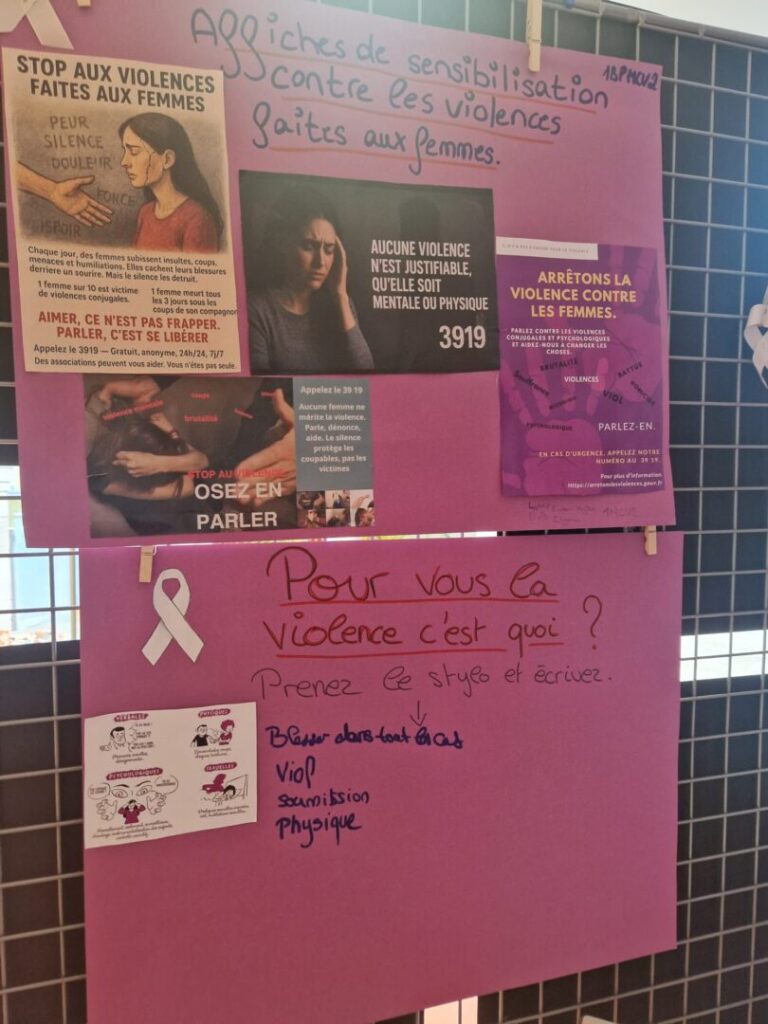 Affiches de sensibilisation
contre les violences
faites aux femmes.
1BPMCV2
STOP AUX VIOLENCES
FAITES AUX FEMMES
PEUR
SILENCE
DOULEUR
FORCE
ESPOIR
Chaque jour, des femmes subissent insultes, coups,
menaces et humiliations. Elles cachent leurs blessures
derriere un sourire. Mais le silence les detruit.
1 femme sur 10 est victime
de violences conjugales.
1 femme meurt tous
les 3 jours sous les
coups de son compagnon
AIMER, CE N'EST PAS FRAPPER.
PARLER, C'EST SE LIBÉRER
Appelez le 3919 — Gratuit, anonyme, 24h/24, 7j/7
Des associations peuvent vous aider. Vous n'êtes pas seule.
AUCUNE VIOLENCE
N'EST JUSTIFIABLE,
QU'ELLE SOIT
MENTALE OU PHYSIQUE
3919
ARRÊTONS LA
VIOLENCE CONTRE
LES FEMMES.
PARLEZ CONTRE LES VIOLENCES
CONJUGALES ET PSYCHOLOGIQUES
ET AIDEZ-NOUS A CHANGER LES
CHOSES.
BRUTALITÉ
BATTUE
VIOLENCES
VIOL
PSYCHOLOGIQUE
PARLEZ-EN.
EN CAS D'URGENCE, APPELEZ NOTRE
NUMÉRO AU 39 19.
Pour plus d'information
https://arretonslesviolences.gouv.fr
violence mentale
brutalité
STOP AU VIOLENCE
OSEZ EN
PARLER
Appelez le 39 19
Aucune femme ne
mérite la violence.
Parle, dénonce,
aide. Le silence
protège les
coupables, pas les
victimes
Pour vous la
violence c'est quoi ?
Prenez le stylo et écrivez.
VERBALES
PHYSIQUES
PSYCHOLOGIQUES
SEXUELLES
Blesser dans tout les cas
Viol
soumission
Physique